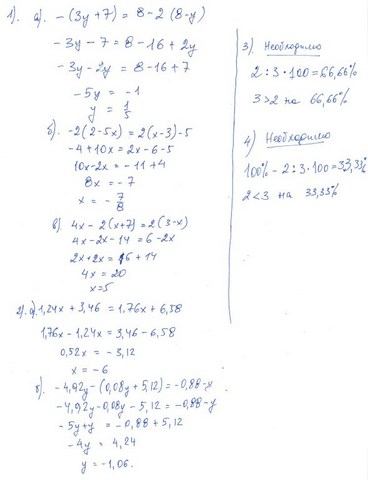 1). а). -(3y+7) = 8-2(8-y)
-3y-7 = 8-16+2y
-3y-2y = 8-16+7
-5y = -1
y = 1/5
б). -2(2-5x) = 2(x-3)-5
-4+10x = 2x-6-5
10x-2x = -11+4
8x = -7
x = -7/8
в). 4x-2(x+7) = 2(3-x)
4x-2x-14 = 6-2x
2x+2x = 6+14
4x = 20
x=5
2). а). 1,24x+3,46 = 1,76x+6,58
1,76x-1,24x = 3,46-6,58
0,52x = -3,12
x = -6
б). -4,92y-(0,08y+5,12) = -0,88-y
-4,92y-0,08y-5,12 = -0,88-y
-5y+y = -0,88+5,12
-4y = 4,24
y = -1,06.
3) Необходимо
2:3·100 = 66,66%
3>2 на 66,66%
4) Необходимо
100% - 2:3·100 = 33,33%
2<3 на 33,33%